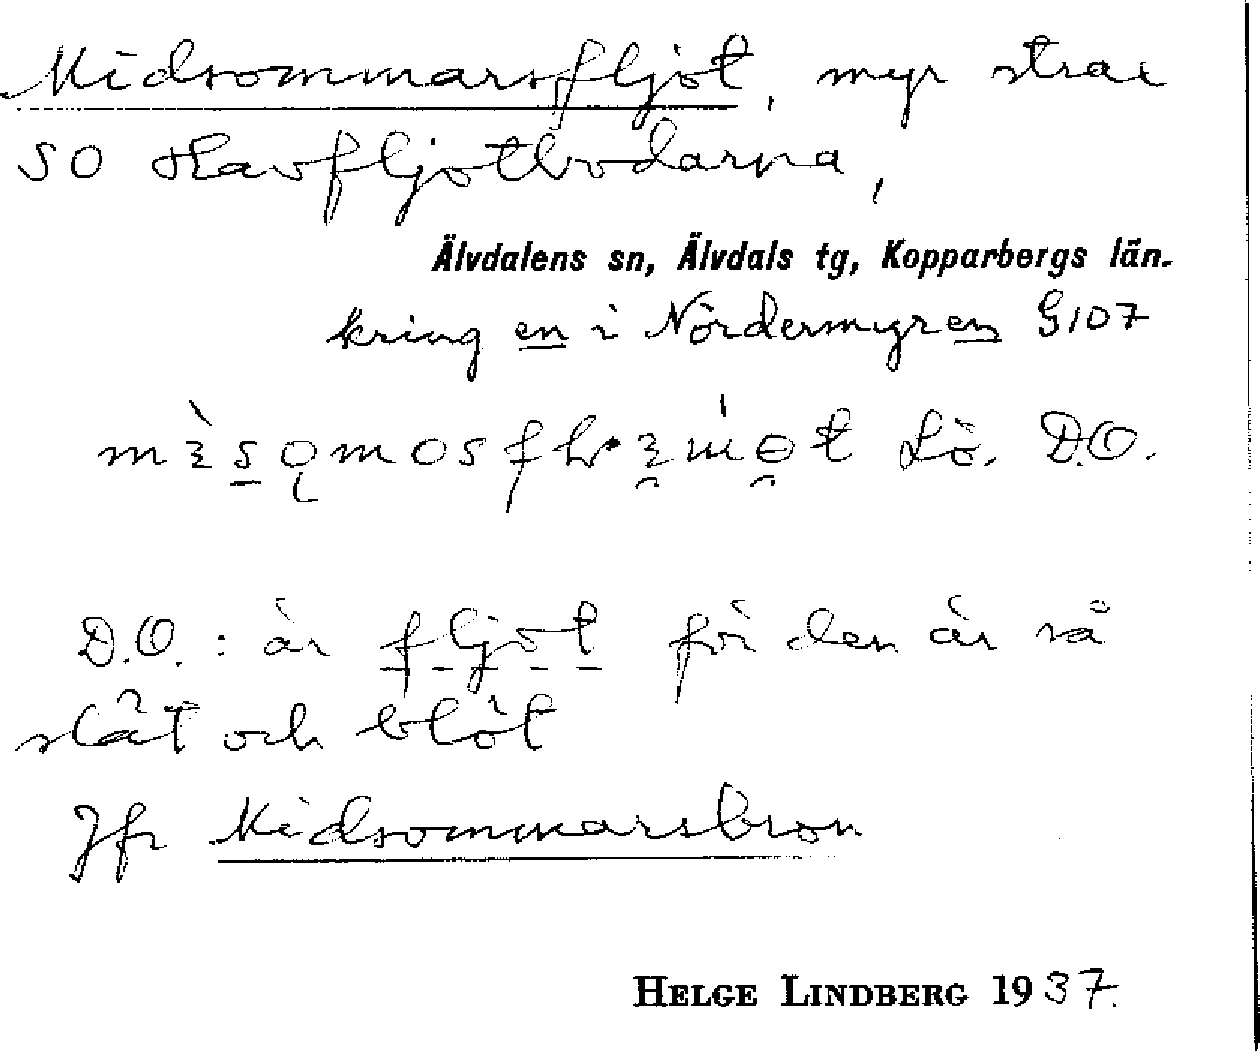 Midsommarsfljöt, myr strax
SO Havfljötbodarna,
Älvdalens sn, Älvdals tg, Kopparbergs län.
kring en i Nördermyren G107
Lö. D.O.
D.O. : är fljöt för den är så
slät och blöt
Jfr Midsommarsbron
HELGE LINDBERG 1937.